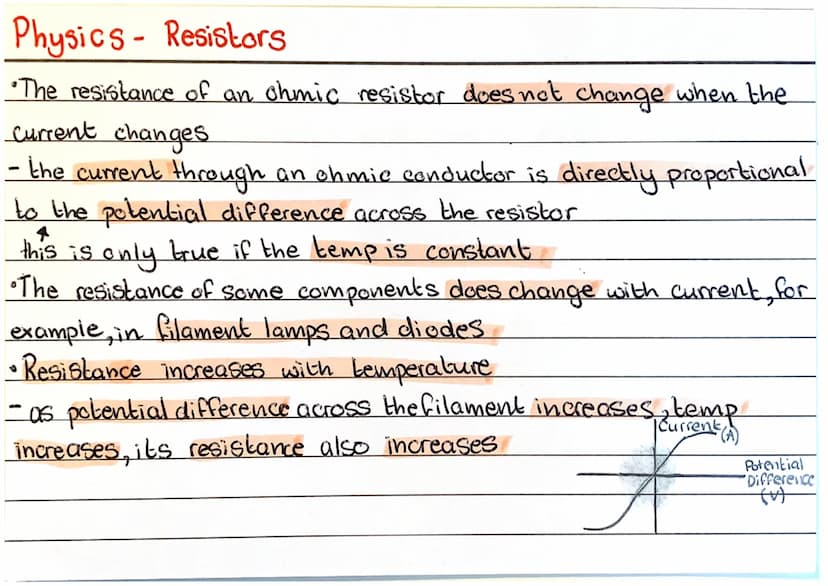 Physics - Resistors
•The resistance of an ohmic resistor does not change when the
current changes
- the current through an ohmic conductor is directly proportional
to the potential difference across the resistor
this is only true if the temp is constant
•The resistance of some components does change with current, for
example, in filament lamps and diodes
•Resistance increases with temperature
- as potential difference across the filament increases, temp
increases, its resistance also increases
Current
(A)
Potential
Difference
(V)